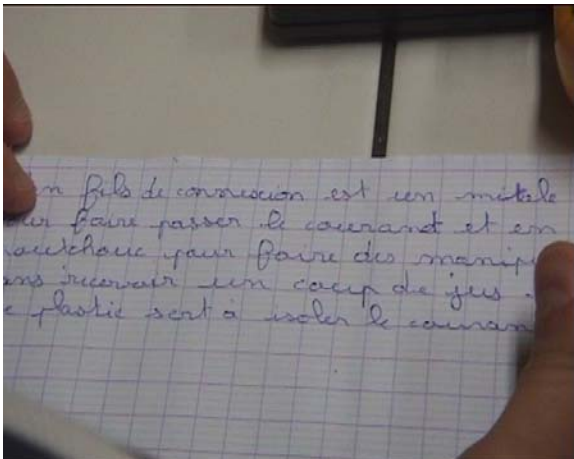 un fils de connexion est en métale
our faire passer le courand et en
aoutchouc pour faire des manip
ans recevoir un coup de jus.
e plastic sert à isoler le couran